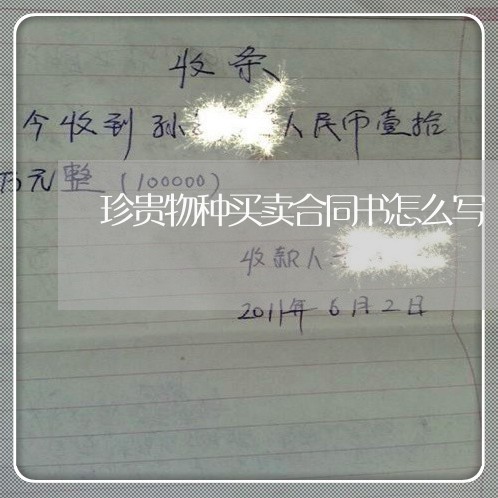 收条
今收到孙 人民币壹拾
万元整(100000)
珍贵物种买卖合同书怎么写
收款人
2011年6月2日